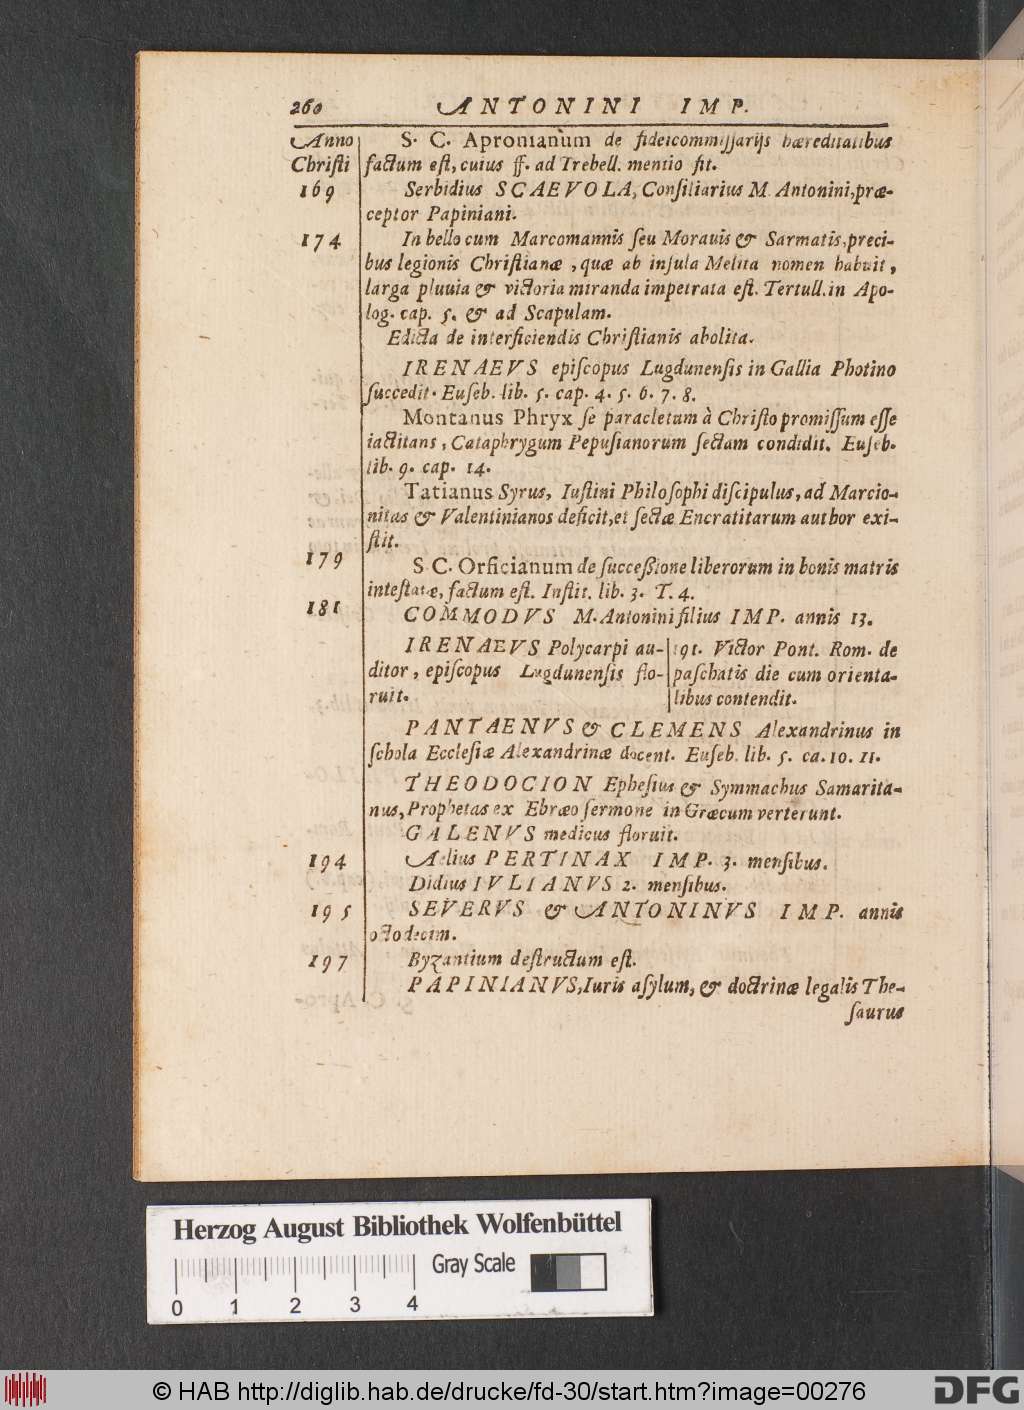 260 ANTONINI IMP.
Anno S. C. Apronianum de fideicommissarijs hæreditatibus
Christi factum est, cuius ff. ad Trebell. mentio fit.
169 Serbidius SCAEVOLA, Consiliarius M. Antonini, præ-
ceptor Papiniani.
174 In bello cum Marcomannis seu Morauis & Sarmatis, preci-
bus legionis Christianæ, quæ ab insula Melita nomen habuit,
larga pluuia & victoria miranda impetrata est. Tertull. in Apo-
log. cap. 5. & ad Scapulam.
Edicta de interficiendis Christianis abolita.
IRENAEVS episcopus Lugdunensis in Gallia Photino
succedit. Euseb. lib. 5. cap. 4. 5. 6. 7. 8.
Montanus Phryx se paracletum à Christo promissum esse
iactitans, Cataphrygum Pepusianorum sectam condidit. Euseb.
lib. 9. cap. 14.
Tatianus Syrus, Iustini Philosophi discipulus, ad Marcio-
nitas & Valentinianos deficit, et sectæ Encratitarum author exi-
stit.
179 S. C. Orficianum de successione liberorum in bonis matris
intestatæ, factum est. Instit. lib. 3. T. 4.
181 COMMODVS M. Antonini filius IMP. annis 13.
IRENAEVS Polycarpi au-
ditor, episcopus Lugdunensis flo-
ruit.
191. Victor Pont. Rom. de
paschatis die cum orienta-
libus contendit.
PANTAENVS & CLEMENS Alexandrinus in
schola Ecclesiæ Alexandrinæ docent. Euseb. lib. 5. ca. 10. 11.
THEODOCION Ephesius & Symmachus Samarita-
nus, Prophetas ex Ebræo sermone in Græcum verterunt.
GALENVS medicus floruit.
194 Aelius PERTINAX IMP. 3. mensibus.
Didius IVLIANVS 2. mensibus.
195 SEVERVS & ANTONINVS IMP. annis
octodecim.
197 Byzantium destructum est.
PAPINIANVS, Iuris asylum, & doctrinæ legalis The-
saurus
Herzog August Bibliothek Wolfenbüttel
Gray Scale
0 1 2 3 4
© HAB http://diglib.hab.de/drucke/fd-30/start.htm?image=00276
DFG